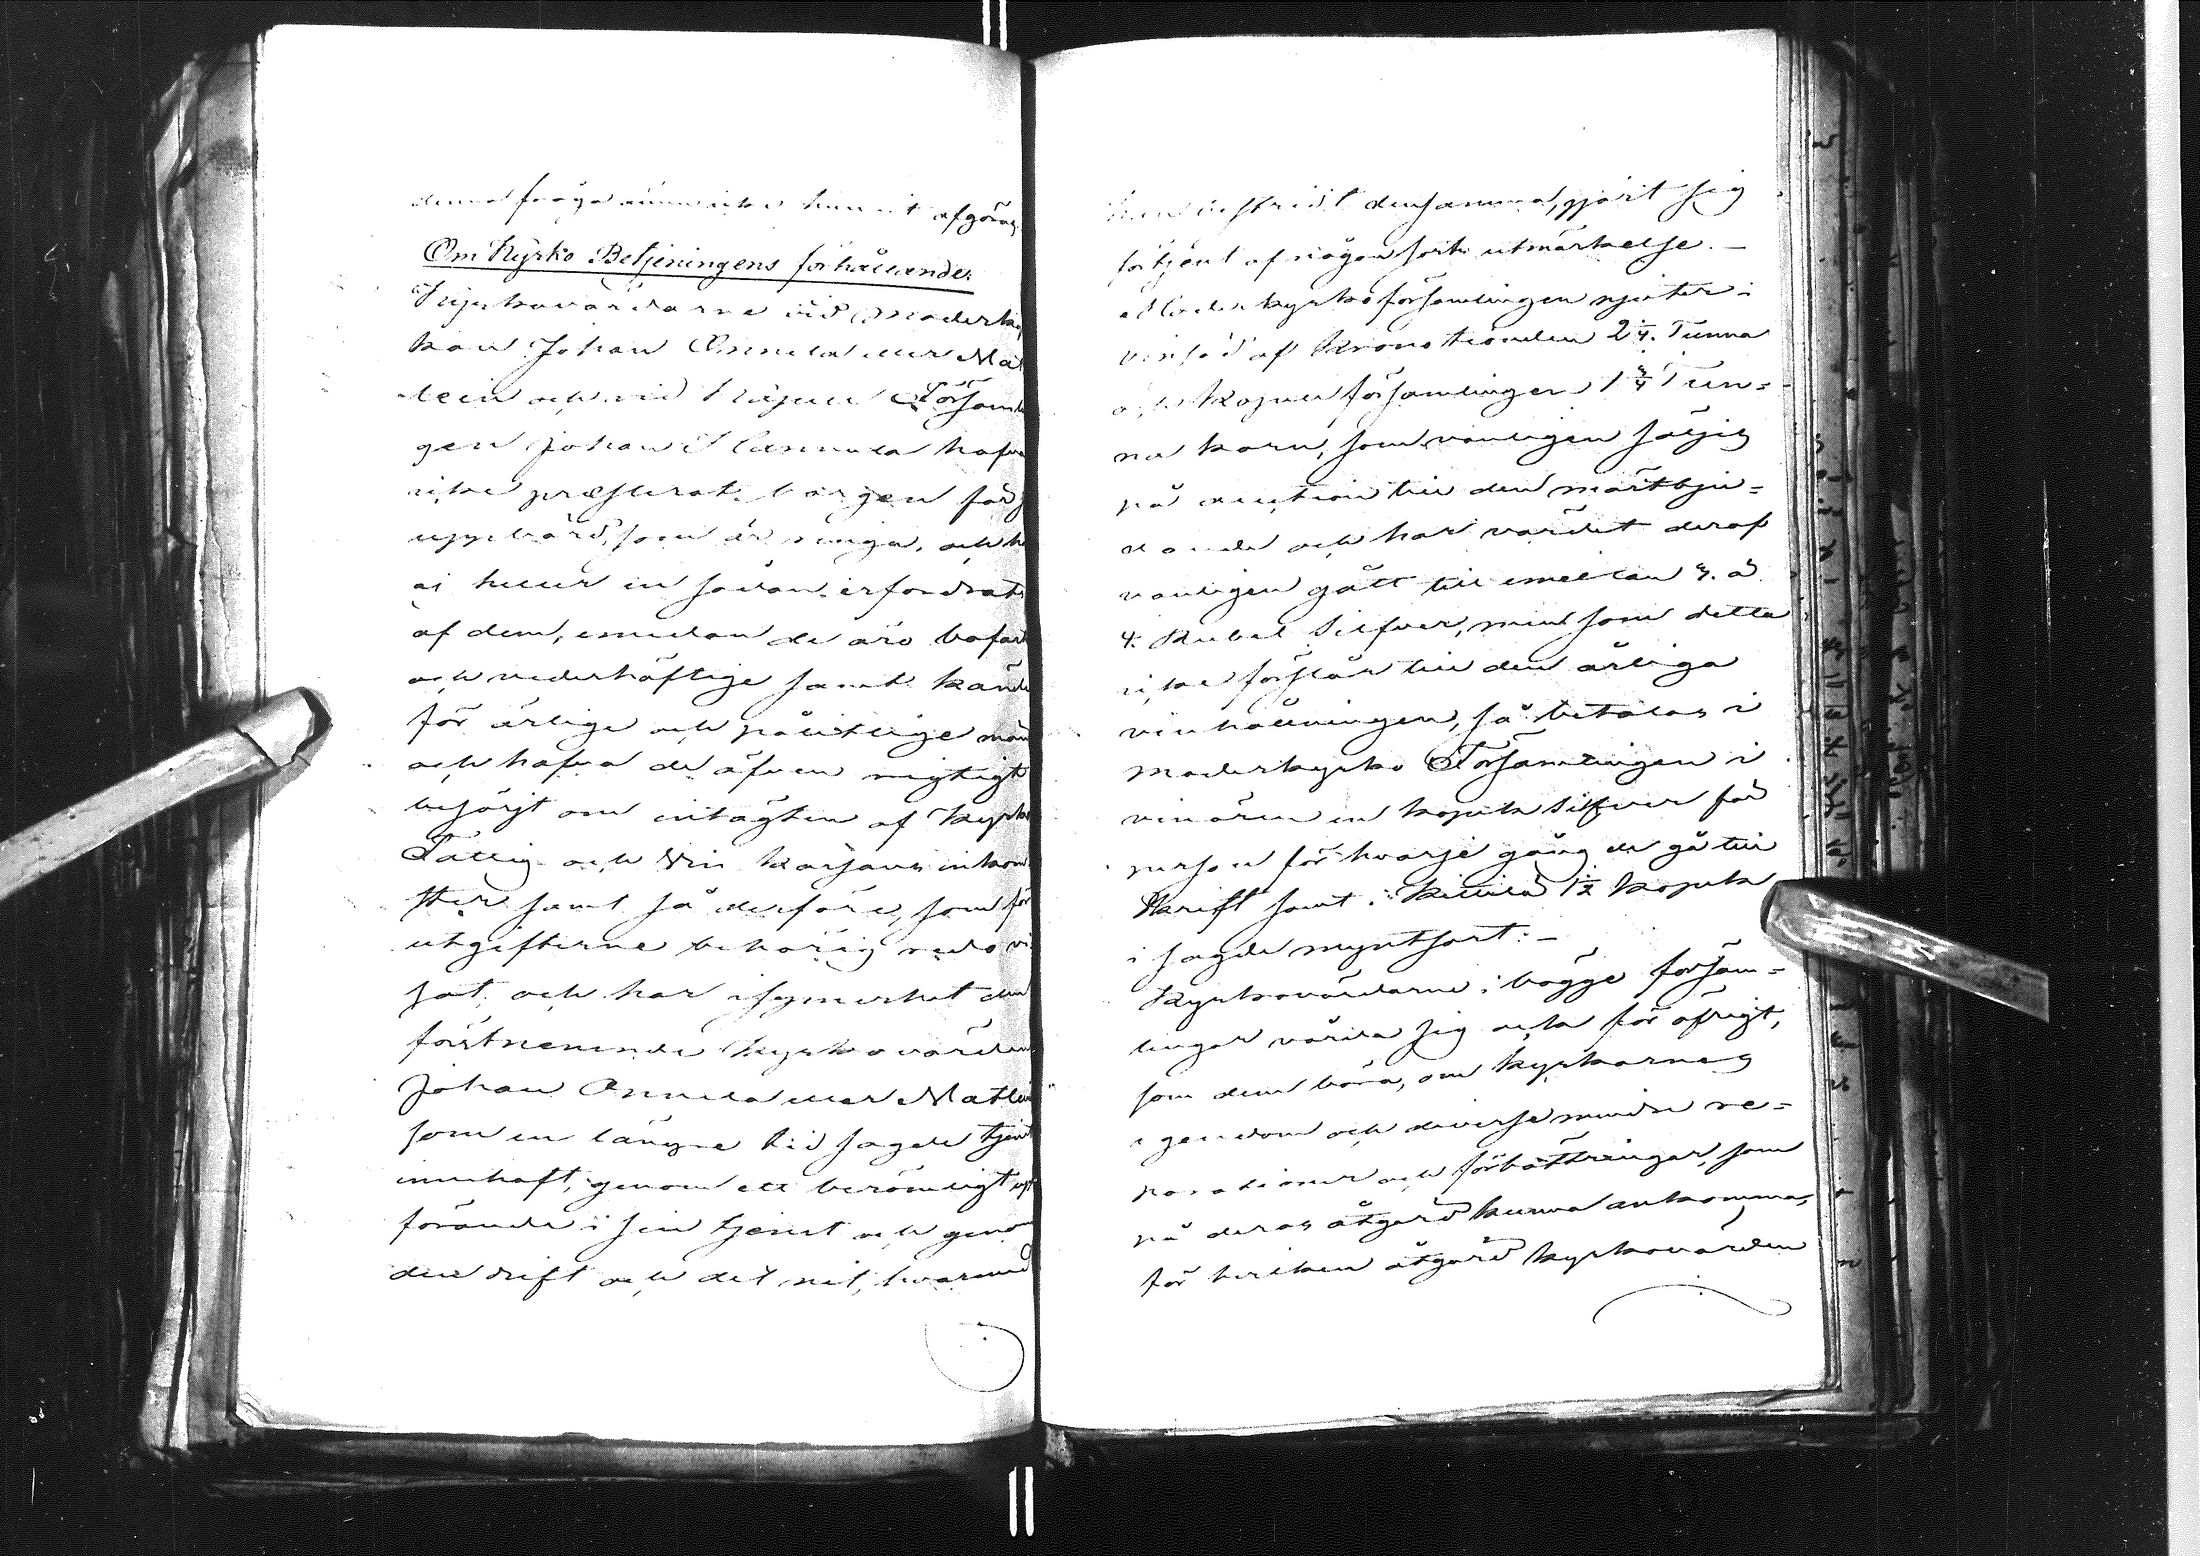 denna fråga ännu icke hunnit afgöras
Om Kyrko Betjeningens förhållande.
Kyrkovärdarne vid Moderky
kan Johan Onnela eller Mat
lein och vid Kapell Församl
gen Johan Hannula hafva
icke præsterat borgen för
uppbörd, som är ringa, och h
ej heller en sådan erfordrats
af dem, emedan de äro bofaste
och vederhäftige samt kände
för ärlige och pålitlige män
och hafva de äfven rigtigt
besörjt om intägten af Kyrko
Fattig och Vin Kassans inkom
ster samt så derföre, som för
utgifterne behörig redovi
sat, och har isynnerhet den
förstnemnde kyrkovärden
Johan Onnela eller Matlein
som en längre tid sagde tjenst
innehaft, genom ett berömligt upp
förande i sin tjenst och genom
den drift och det nit, hvarmed
han bestridt densamma, gjort sig
förtjent af någon sorts utmärkelse. –
Moderkyrkoförsamlingen njuter i
vinsäd af Kronotionden 2 1/4. Tunna
och Kapell församlingen 1 3/4 Tun=
na korn, som vanligen säljes
på auction till den mästbju=
dande och har värdet deraf
vanligen gått till emellan 3. à
4. Rubel Silfver, men som detta
icke förslår till den årliga
vinhållningen, så betalas i
moderkyrko Församlingen i
vinören en kopek Silfver för
person för hvarje gång de gå till
Skrift samt i Kittilä 1 1/2 kopek
i sagde myntsort. –
Kyrkovärdarne i bägge försam=
lingar vårda sig ock för öfrigt,
som dem böra, om kyrkornes
egendom och diverse mindre re=
parationer och förbättringar, som
på deras åtgärd kunna ankomma,
för hvilken åtgärd kyrkovärden